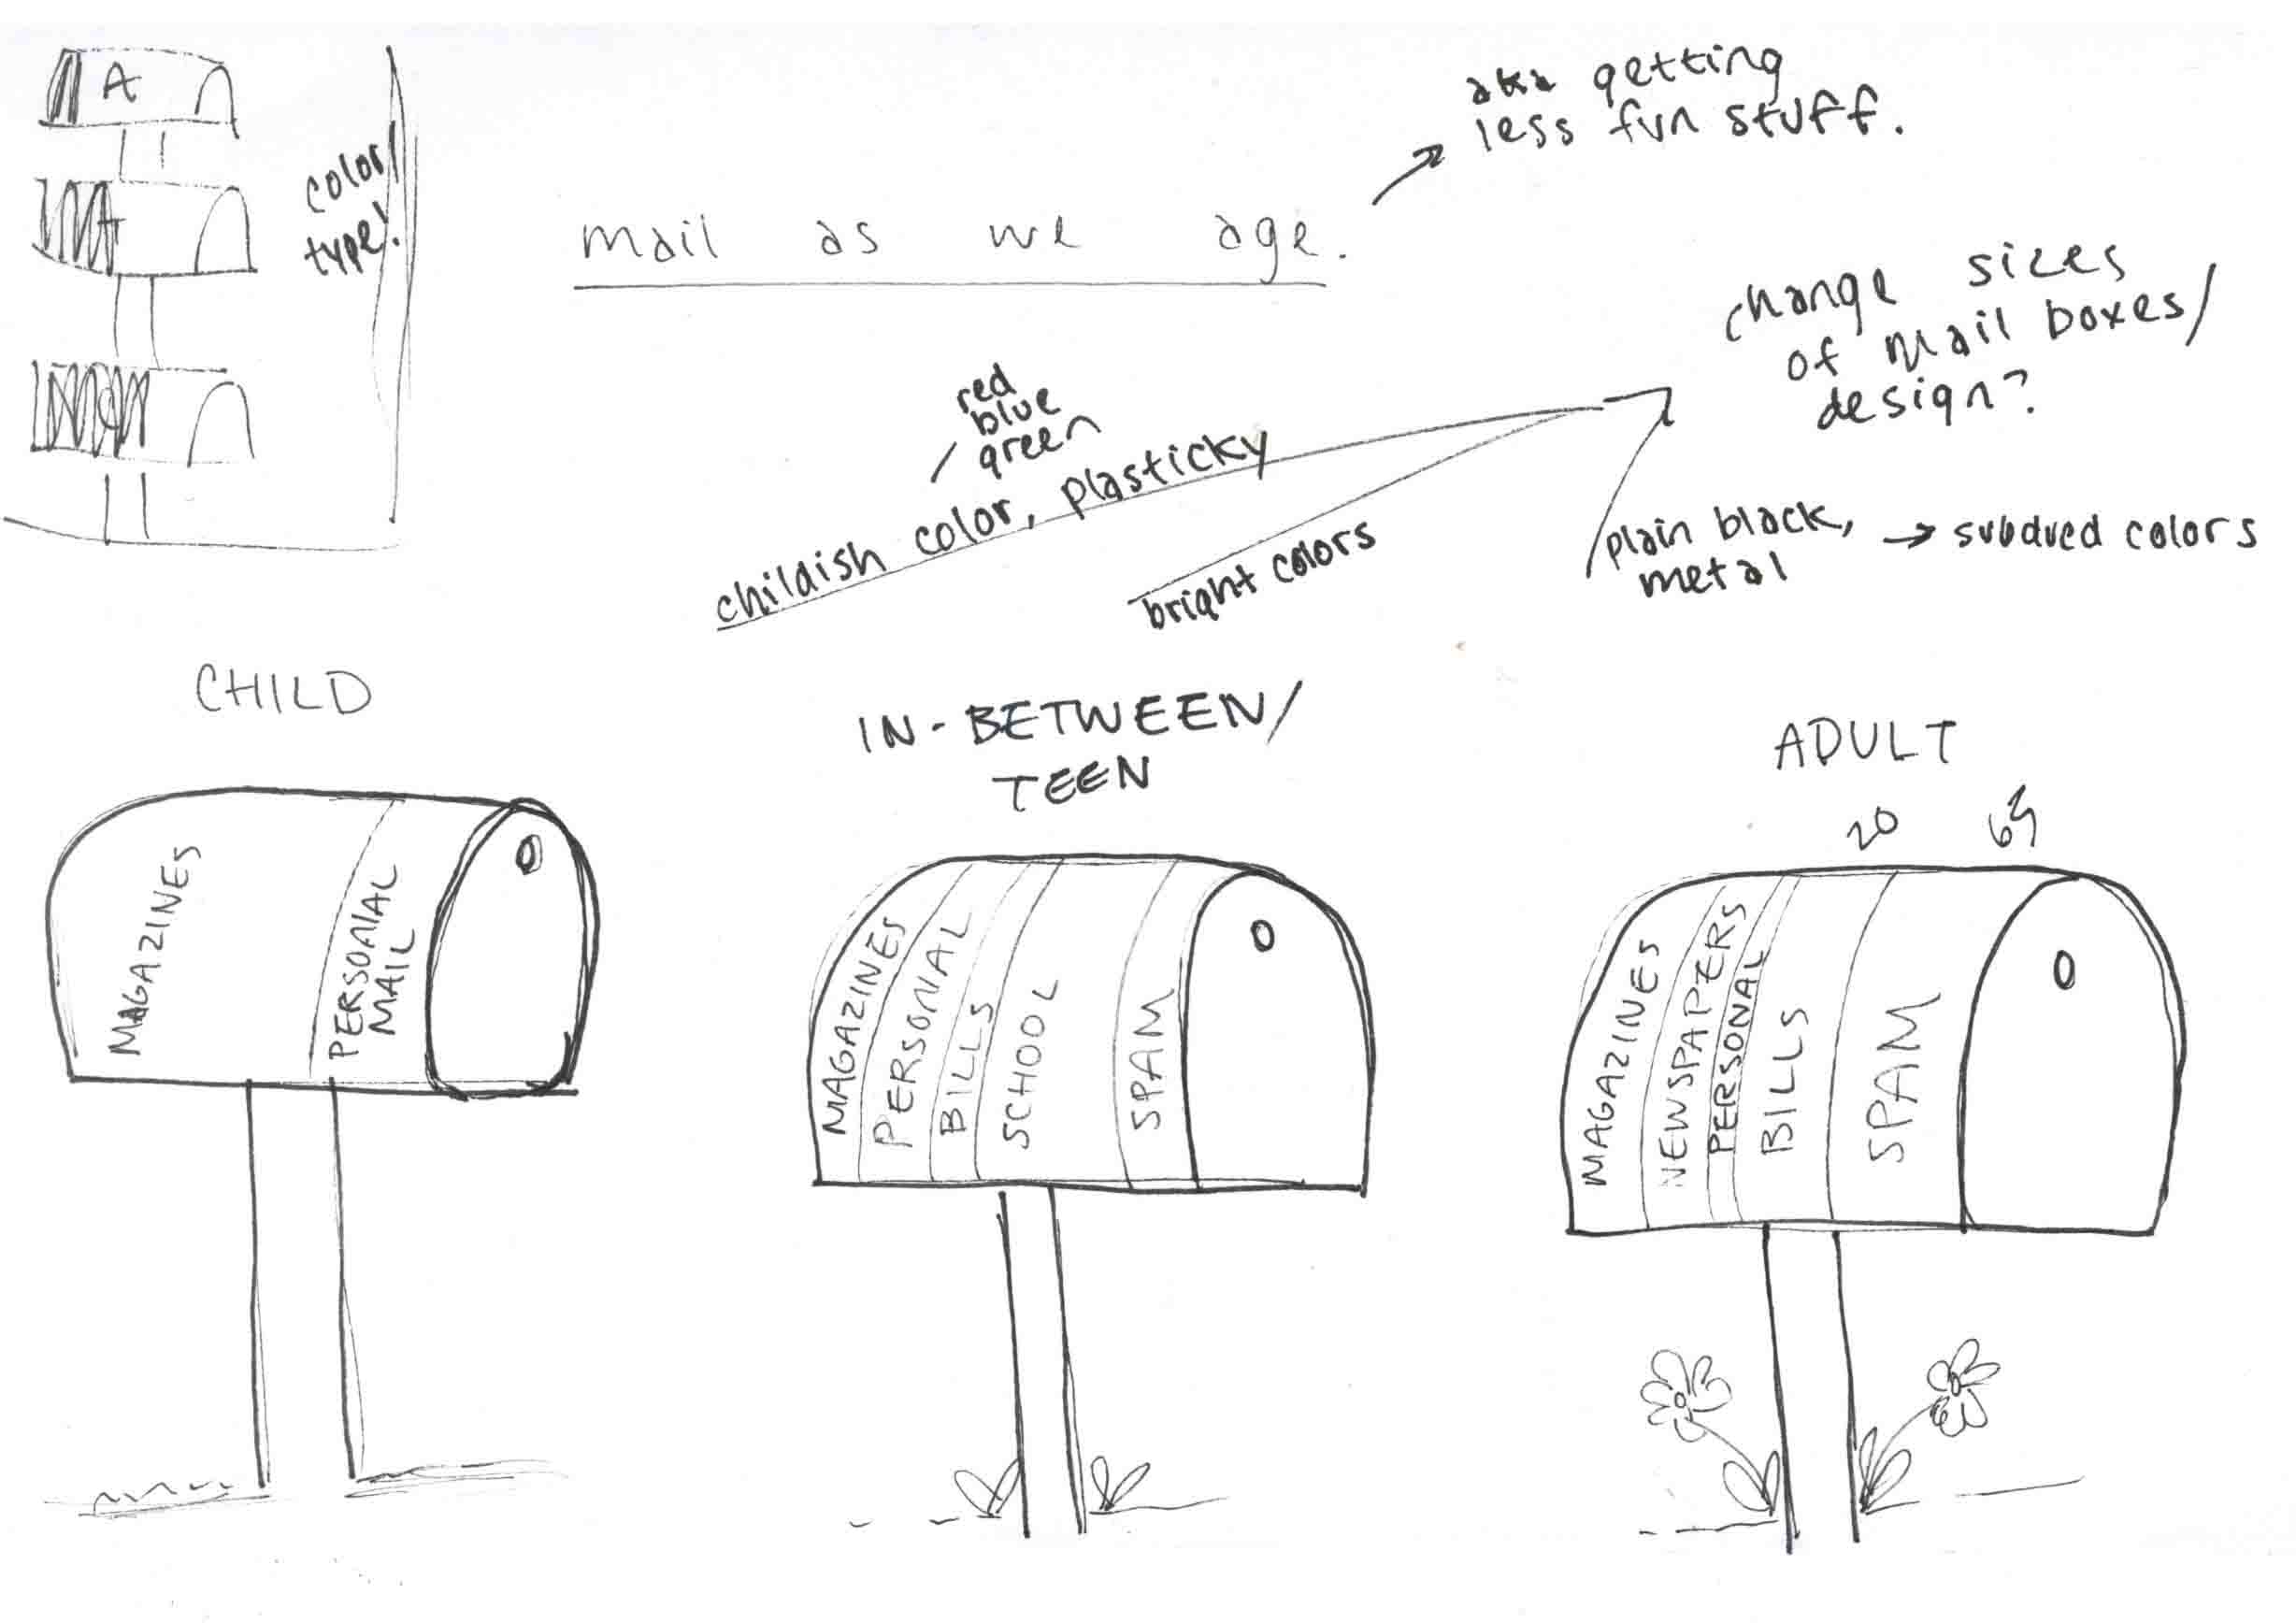 A
color/
type!
mail as we age.
aka getting
less fun stuff.
change sizes
of mail boxes/
design?
red
blue
green
childish color, plasticky
bright colors
plain black,
metal
→ subdued colors
CHILD
MAGAZINES
PERSONAL
MAIL
IN-BETWEEN/
TEEN
MAGAZINES
PERSONAL
BILLS
SCHOOL
SPAM
ADULT
20
MAGAZINES
NEWSPAPERS
PERSONAL
BILLS
SPAM